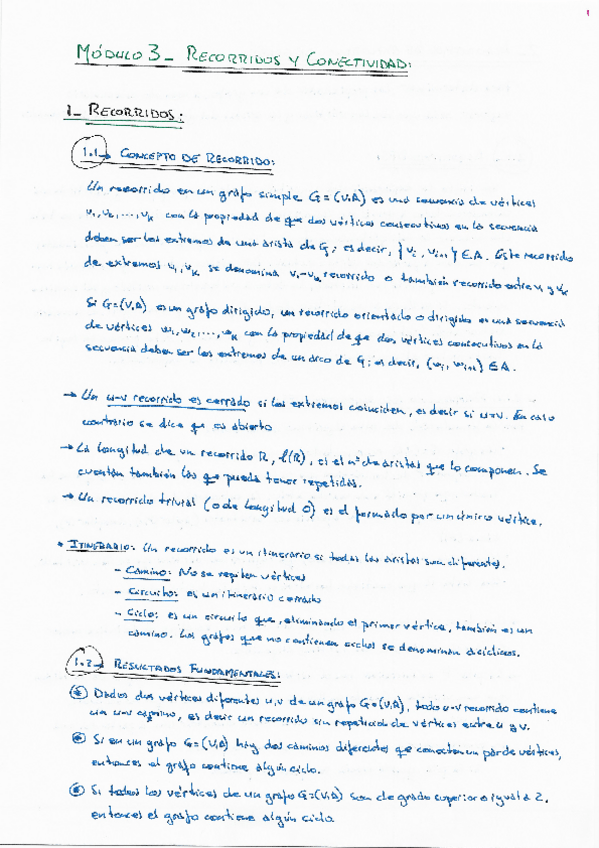 MÓDULO 3_ RECORRIDOS Y CONECTIVIDAD:
1_ RECORRIDOS:
1.1→ CONCEPTO DE RECORRIDO:
Un recorrido en un grafo simple G=(V,A) es una secuencia de vértices
v₁,v₂,...,vₖ con la propiedad de que dos vértices consecutivos en la secuencia
deben ser los extremos de una arista de G; es decir, {vᵢ, vᵢ₊₁} ∈ A. Este recorrido
de extremos v₁,vₖ se denomina v₁-vₖ recorrido o también recorrido entre v₁ y vₖ
Si G=(V,A) es un grafo dirigido, un recorrido orientado o dirigido es una secuencia
de vértices w₁,w₂,...,wₖ con la propiedad de que dos vértices consecutivos en la
secuencia deben ser los extremos de un arco de G; es decir, (wᵢ, wᵢ₊₁) ∈ A.
→ Un u-v recorrido es cerrado si los extremos coinciden, es decir si u=v. En caso
contrario se dice que es abierto
→ La longitud de un recorrido R, ℓ(R), es el nº de aristas que lo componen. Se
cuentan también las que pueda tener repetidas.
→ Un recorrido trivial (o de longitud 0) es el formado por un único vértice.
• ITINERARIO: Un recorrido es un itinerario si todas las aristas son diferentes.
- Camino: No se repiten vértices
- Circuito: es un itinerario cerrado
- Ciclo: es un circuito que, eliminando el primer vértice, también es un
camino. Los grafos que no contienen ciclos se denominan acíclicos.
1.2→ RESULTADOS FUNDAMENTALES:
Dados dos vértices diferentes u,v de un grafo G=(V,A), todo u-v recorrido contiene
un u-v camino, es decir un recorrido sin repetición de vértices entre u y v.
Si en un grafo G=(V,A) hay dos caminos diferentes que conectan un par de vértices,
entonces el grafo contiene algún ciclo.
Si todos los vértices de un grafo G=(V,A) son de grado superior o igual a 2,
entonces el grafo contiene algún ciclo.